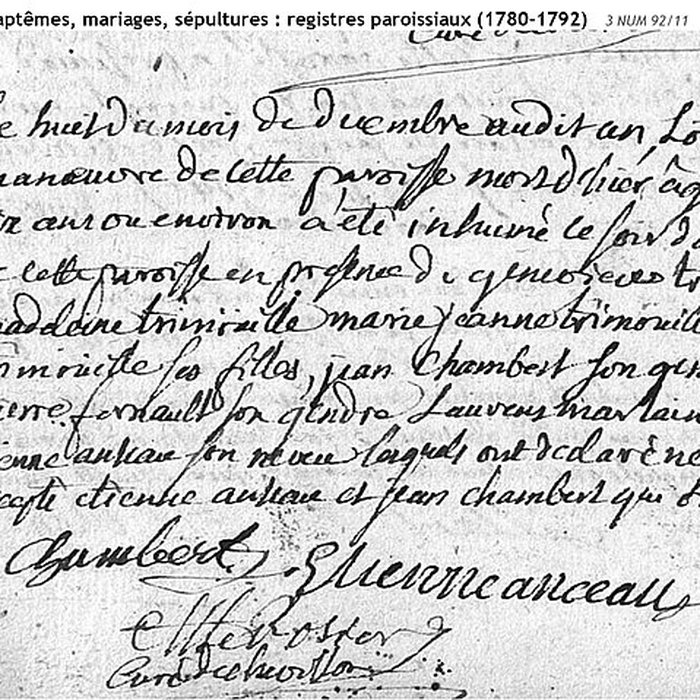 aptêmes, mariages, sépultures : registres paroissiaux (1780-1792) 3 NUM 92/11
Curé
e huit du mois de decembre audit an, Lo
anœuvre de cette paroisse mort d'hier âg
ans ou environ a été inhumé ce jour d
cette paroisse en presence de genevieve tr
adeleine trimouille marie jeanne trimouill
mouille ses filles, jean Chambert son gen
ierre fernault son gendre Laurens martain
ienne anseau son neveu lesquels ont declaré ne
cepté etienne anseau et jean chambert qui o
Chumbert Etienne anceau
Curé de